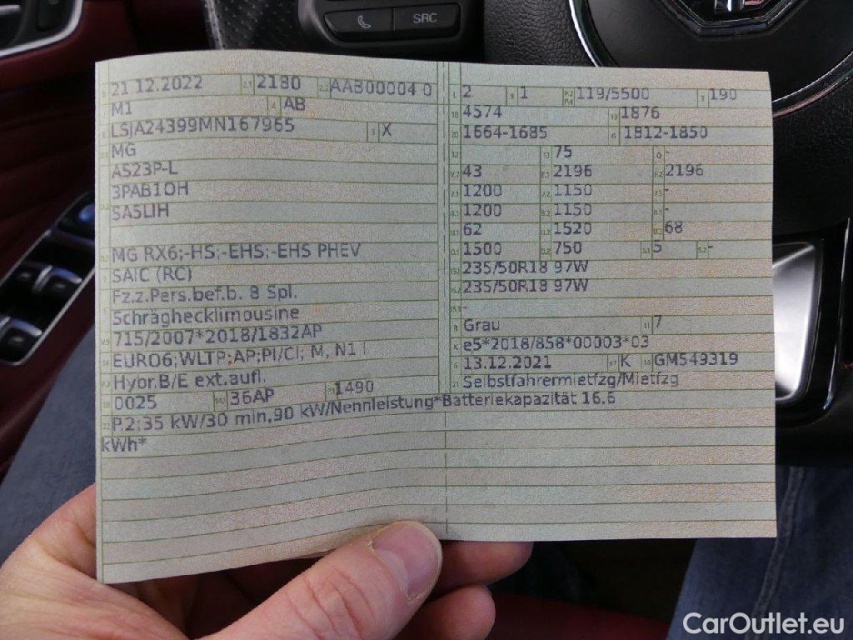 SRC
21 12.2022 2180 AAB00004 0
M1 AB
LSJA24399MN167965 X
MG
AS23P-L
3PAB1OH
SA5LIH
MG RX6;-HS;-EHS;-EHS PHEV
SAIC (RC)
Fz.z.Pers.bef.b. 8 Spl.
Schräghecklimousine
715/2007*2018/1832AP
EURO6;WLTP;AP;PI/CI; M, N1 I
Hybr.B/E ext.aufl.
0025 36AP 1490
P.2:35 kW/30 min,90 kW/Nennleistung*Batteriekapazität 16.6
kWh*
2 1 119/5500 190
4574 1876
1664-1685 1812-1850
75 -
43 2196 2196
1200 1150 -
1200 1150 -
62 1520 68
1500 750 5 -
235/50R18 97W
235/50R18 97W
-
Grau 7
e5*2018/858*00003*03
13.12.2021 K GM549319
Selbstfahrermietfzg/Mietfzg
CarOutlet.eu